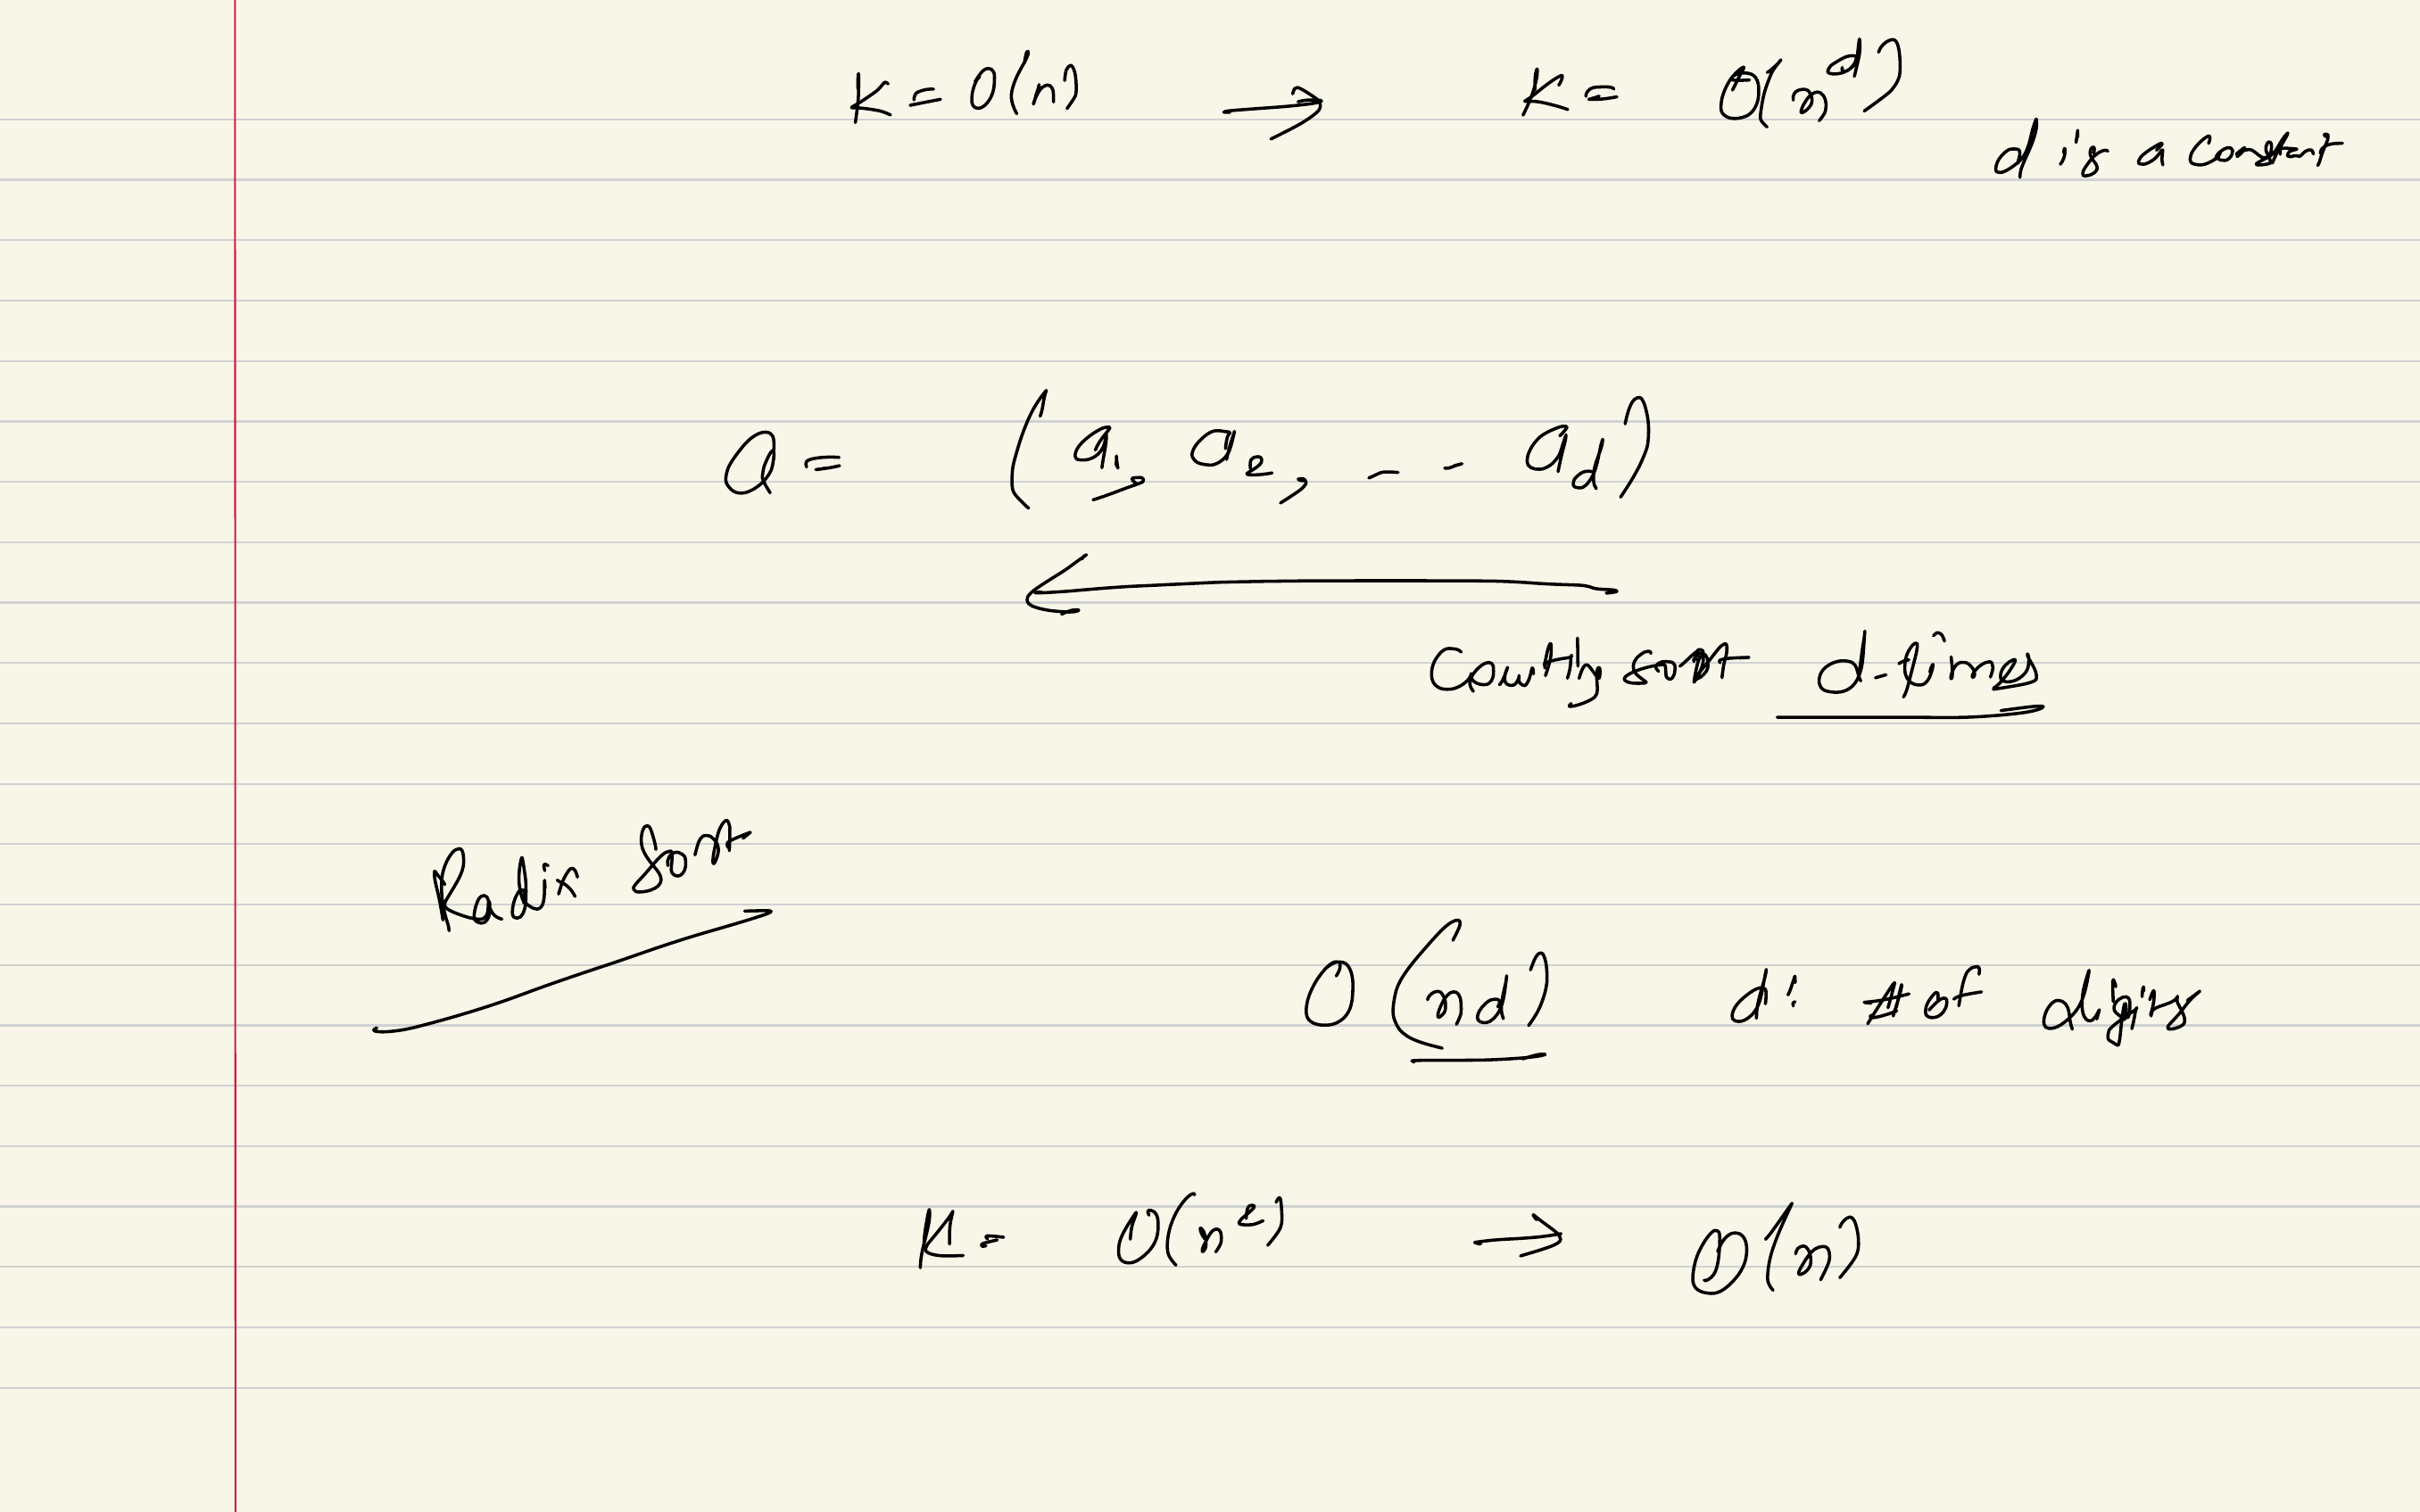 K = O(n) → K = O(n^d)
d is a constant
a = (a₁, a₂, - - a_d)
counting sort d-times
Radix Sort
O(nd) d: # of digits
K = O(n²) → O(n)